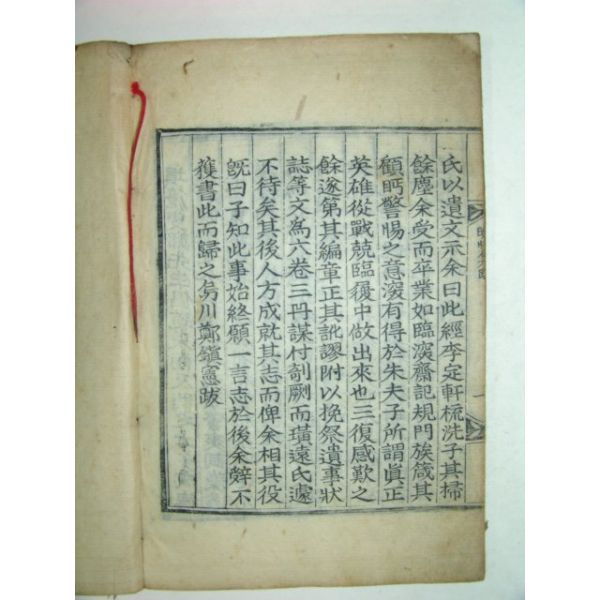 氏以遺文示余曰此經李定軒梳洗子其掃
餘塵余受而卒業如臨深齋記規門族箴其
顧眄警惕之意深有得於朱夫子所謂眞正
英雄從戰兢臨履中做出來也三復感歎之
餘遂第其編章正其訛謬附以挽祭遺事狀
誌等文爲六卷三冊謀付剞劂而璜遠氏遽
不待矣其後人方成就其志而俾余相其役
旣曰子知此事始終願一言志於後余辭不
獲書此而歸之烏川鄭鎭憲跋